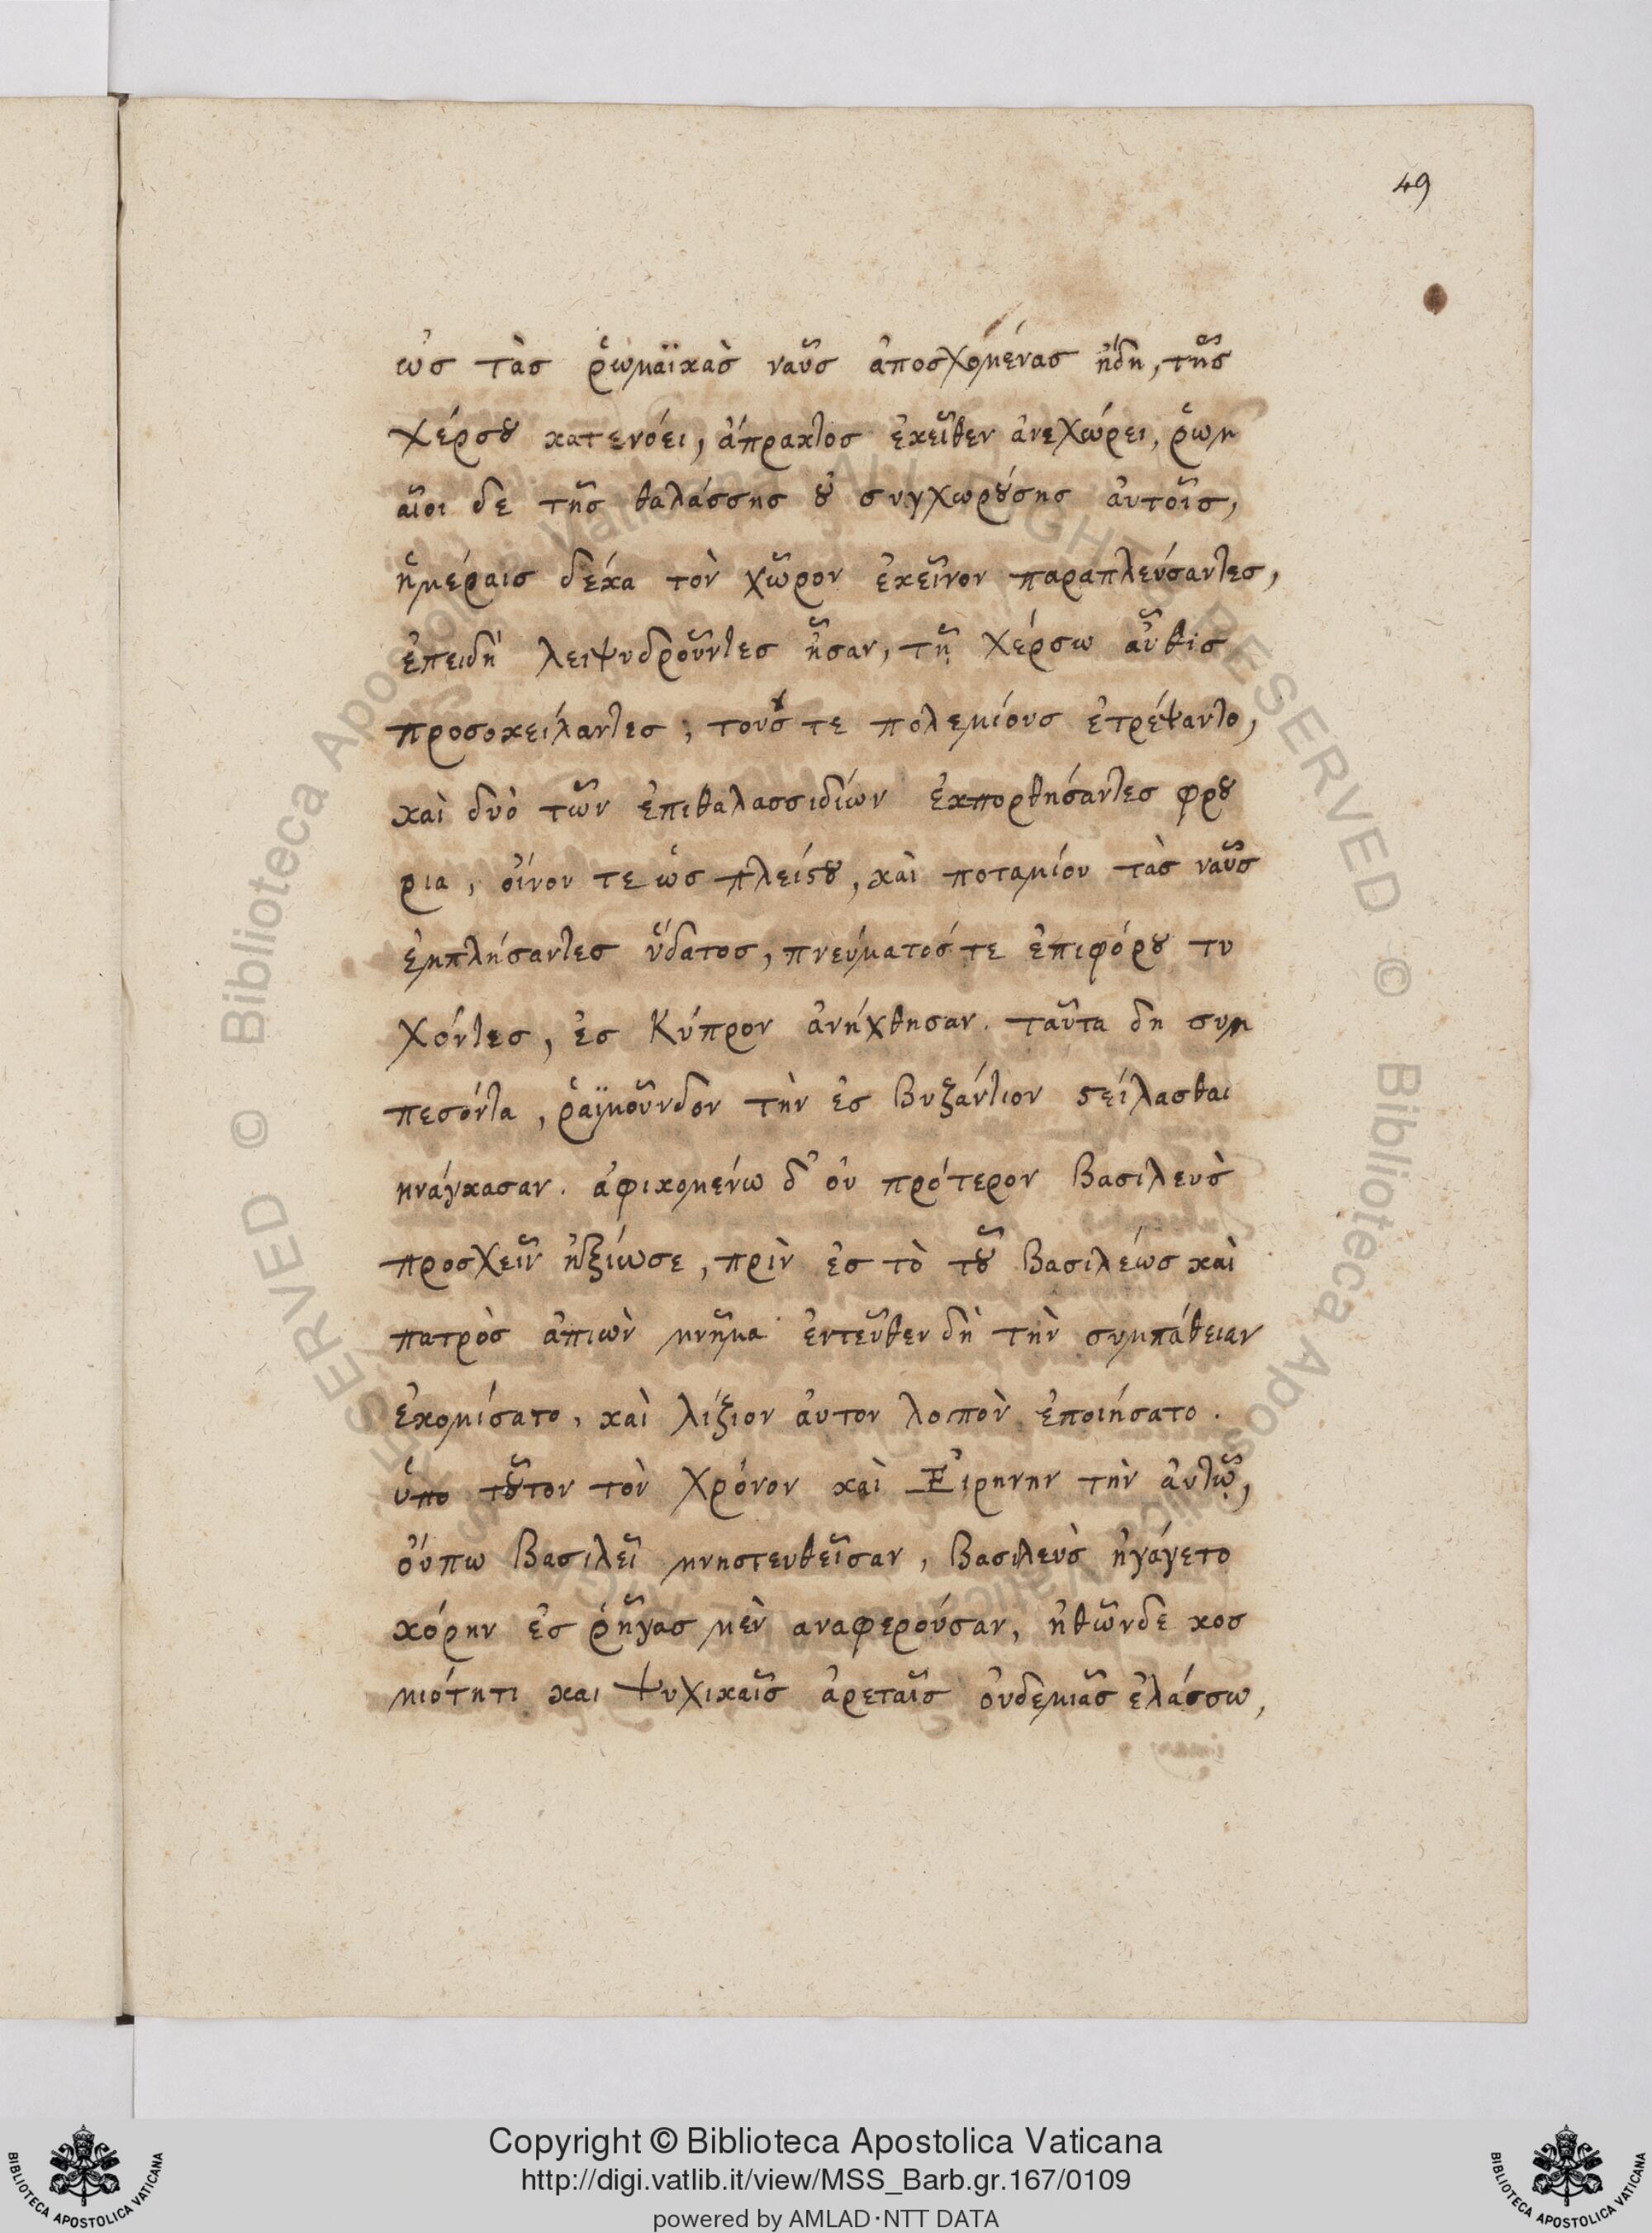 49
ὡς τὰς ῥωμαϊκὰς ναῦς ἀποσχομένας ἤδη, τῆς
χέρσου κατενόει, ἄπρακτος ἐκεῖθεν ἀνεχώρει, ῥωμ
αῖοι δε τῆς θαλάσσης οὐ συγχωρούσης ἀυτοῖς,
ἡμέραις δέκα τὸν χῶρον ἐκεῖνον παραπλεύσαντες,
ἐπειδὴ λειψυδροῦντες ἦσαν, τῇ χέρσω αὖθις
προσοκείλαντες, τους τε πολεμίους ἐτρέψαντο,
καὶ δυὸ τῶν ἐπιθαλασσιδίων ἐκπορθήσαντες φρου
ρια, οἴνου τε ὡς πλείστου, καὶ ποταμίου τὰς ναῦς
ἐμπλήσαντες ὕδατος, πνεύματός τε ἐπιφόρου τυ
χόντες, ἐς Κύπρον ἀνήχθησαν. ταῦτα δη συμ
πεσόντα, ῥαϊμοῦνδον τὴν ἐς Βυζάντιον στείλασθαι
ηνάγκασαν. ἀφικομένω δ' οὐ πρότερον Βασιλευς
προσχεῖν ἠξίωσε, πρὶν ἐς τὸ τοῦ Βασιλέως καὶ
πατρὸς ἀπιὼν μνῆμα ἐντεῦθεν δὴ τὴν συμπάθειαν
ἐκομίσατο, καὶ λίζιον ἀυτον λοιπὸν ἐποιήσατο.
ὑπο τοῦτον τὸν χρόνον καὶ Ἐιρηνην τὴν ἀυτῷ,
ὀύπω Βασιλεῖ μνηστευθεῖσαν, Βασιλευς ἠγάγετο
κόρην ἐς ῥῆγας μὲν αναφερούσαν, ἠθῶνδε κοσ
μιότητι και ψυχικαῖς ἀρεταῖς ὀυδεμιᾶς ἐλάσσω,
Copyright © Biblioteca Apostolica Vaticana
http://digi.vatlib.it/view/MSS_Barb.gr.167/0109
powered by AMLAD·NTT DATA